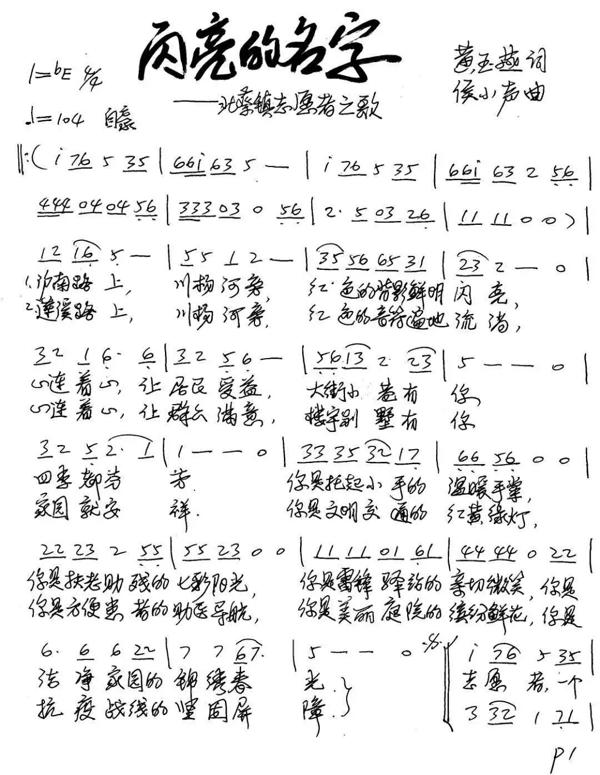 闪亮的名字
——北蔡镇志愿者之歌
黄玉燕词
侯小声曲
1=bE 4/4
♩=104 自豪
‖:( i 76 5 35 | 66i 63 5 — | i 76 5 35 | 66i 63 2 56 |
444 04 04 56 | 333 03 0 56 | 2· 5 03 26 | 11 11 0 0 )
12 16 5 — | 55 1 2 — | 35 56 65 31 | 23 2 — 0 |
1.沪南路上, 川杨河旁, 红色的背影鲜明闪亮,
2.莲溪路上, 川杨河旁, 红色的音符遍地流淌,
32 1 6· 6 | 32 56 — | 56 13 2 23 | 5 — — 0 |
心连着心, 让居民受益, 大街小巷有你
心连着心, 让群众满意, 楼宇别墅有你
32 5 2· 1 | 1 — — 0 | 33 35 32 17 | 66 56 0 0 |
四季都芬芳 你是托起小手的温暖手掌,
家园就安祥. 你是文明交通的红黄绿灯,
22 23 2 55 | 55 23 0 0 | 11 11 01 61 | 44 44 0 22 |
你是扶老助残的七彩阳光, 你是雷锋驿站的亲切微笑, 你是
你是方便患者的助医导航, 你是美丽庭院的缤纷鲜花, 你是
6· 6 6 22 | 7 7 67· | 5 — — 0 | i 76 5 35 |
洁净家园的锦绣春光. 志愿者, 一个
抗疫战线的坚固屏障. 3 32 1 71 |
P1